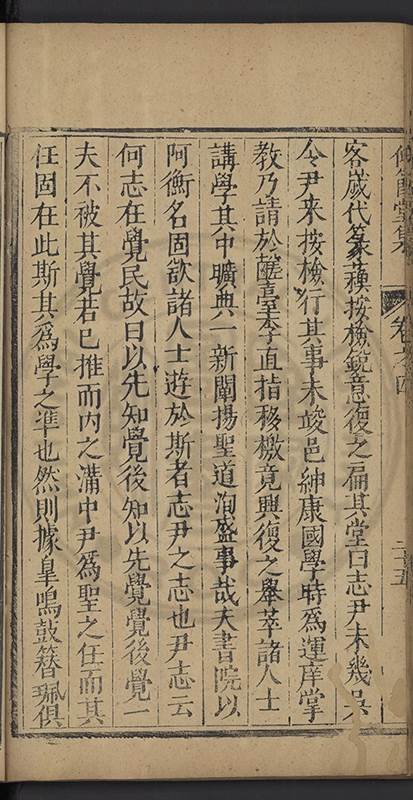 堂集 卷之四 二十五
客歲代篆蘋按檢銳意復之扁其堂曰志尹未幾吳
令尹来按檢行其事未竣邑紳康國學時爲運庠掌
教乃請於鹺臺李直指移檄竟興復之舉萃諸人士
講學其中曠典一新闡揚聖道洵盛事哉夫書院以
阿衡名固欲諸人士遊於斯者志尹之志也尹志云
何志在覺民故曰以先知覺後知以先覺覺後覺一
夫不被其覺若已推而内之溝中尹爲聖之任而其
任固在此斯其爲學之準也然則據皐鳴鼓簪珮俱